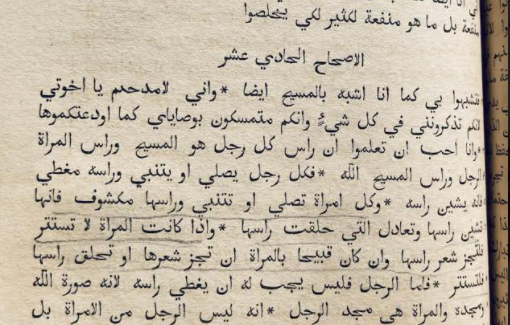 منفعة بل ما هو منفعة لكثير لكي يخلصوا
الاصحاح الحادي عشر
فتشبهوا بي كما انا اشبه بالمسيح ايضا * واني لامدحدم يا اخوتي
لانكم تذكرونني في كل شيءٍ وانكم متمسكون بوصاياي كما اودعتكموها
* وانا احب ان تعلموا ان راس كل رجل هو المسيح وراس المراة
الرجل وراس المسيح الله * فكل رجل يصلي او يتنبي وراسه مغطي
فانه يشين راسه * وكل امراة تصلي او تتنبي وراسها مكشوف فانها
تشين راسها وتعادل التي حلقت راسها * واذا كانت المراة لا تستتر
فلتجز شعر راسها وان كان قبيحا بالمراة ان تجز شعرها او تحلق راسها
فلتستتر * فاما الرجل فليس يجب له ان يغطي راسه لانه صورة الله
ومجده والمراة هي مجد الرجل * انه ليس الرجل من الامراة بل